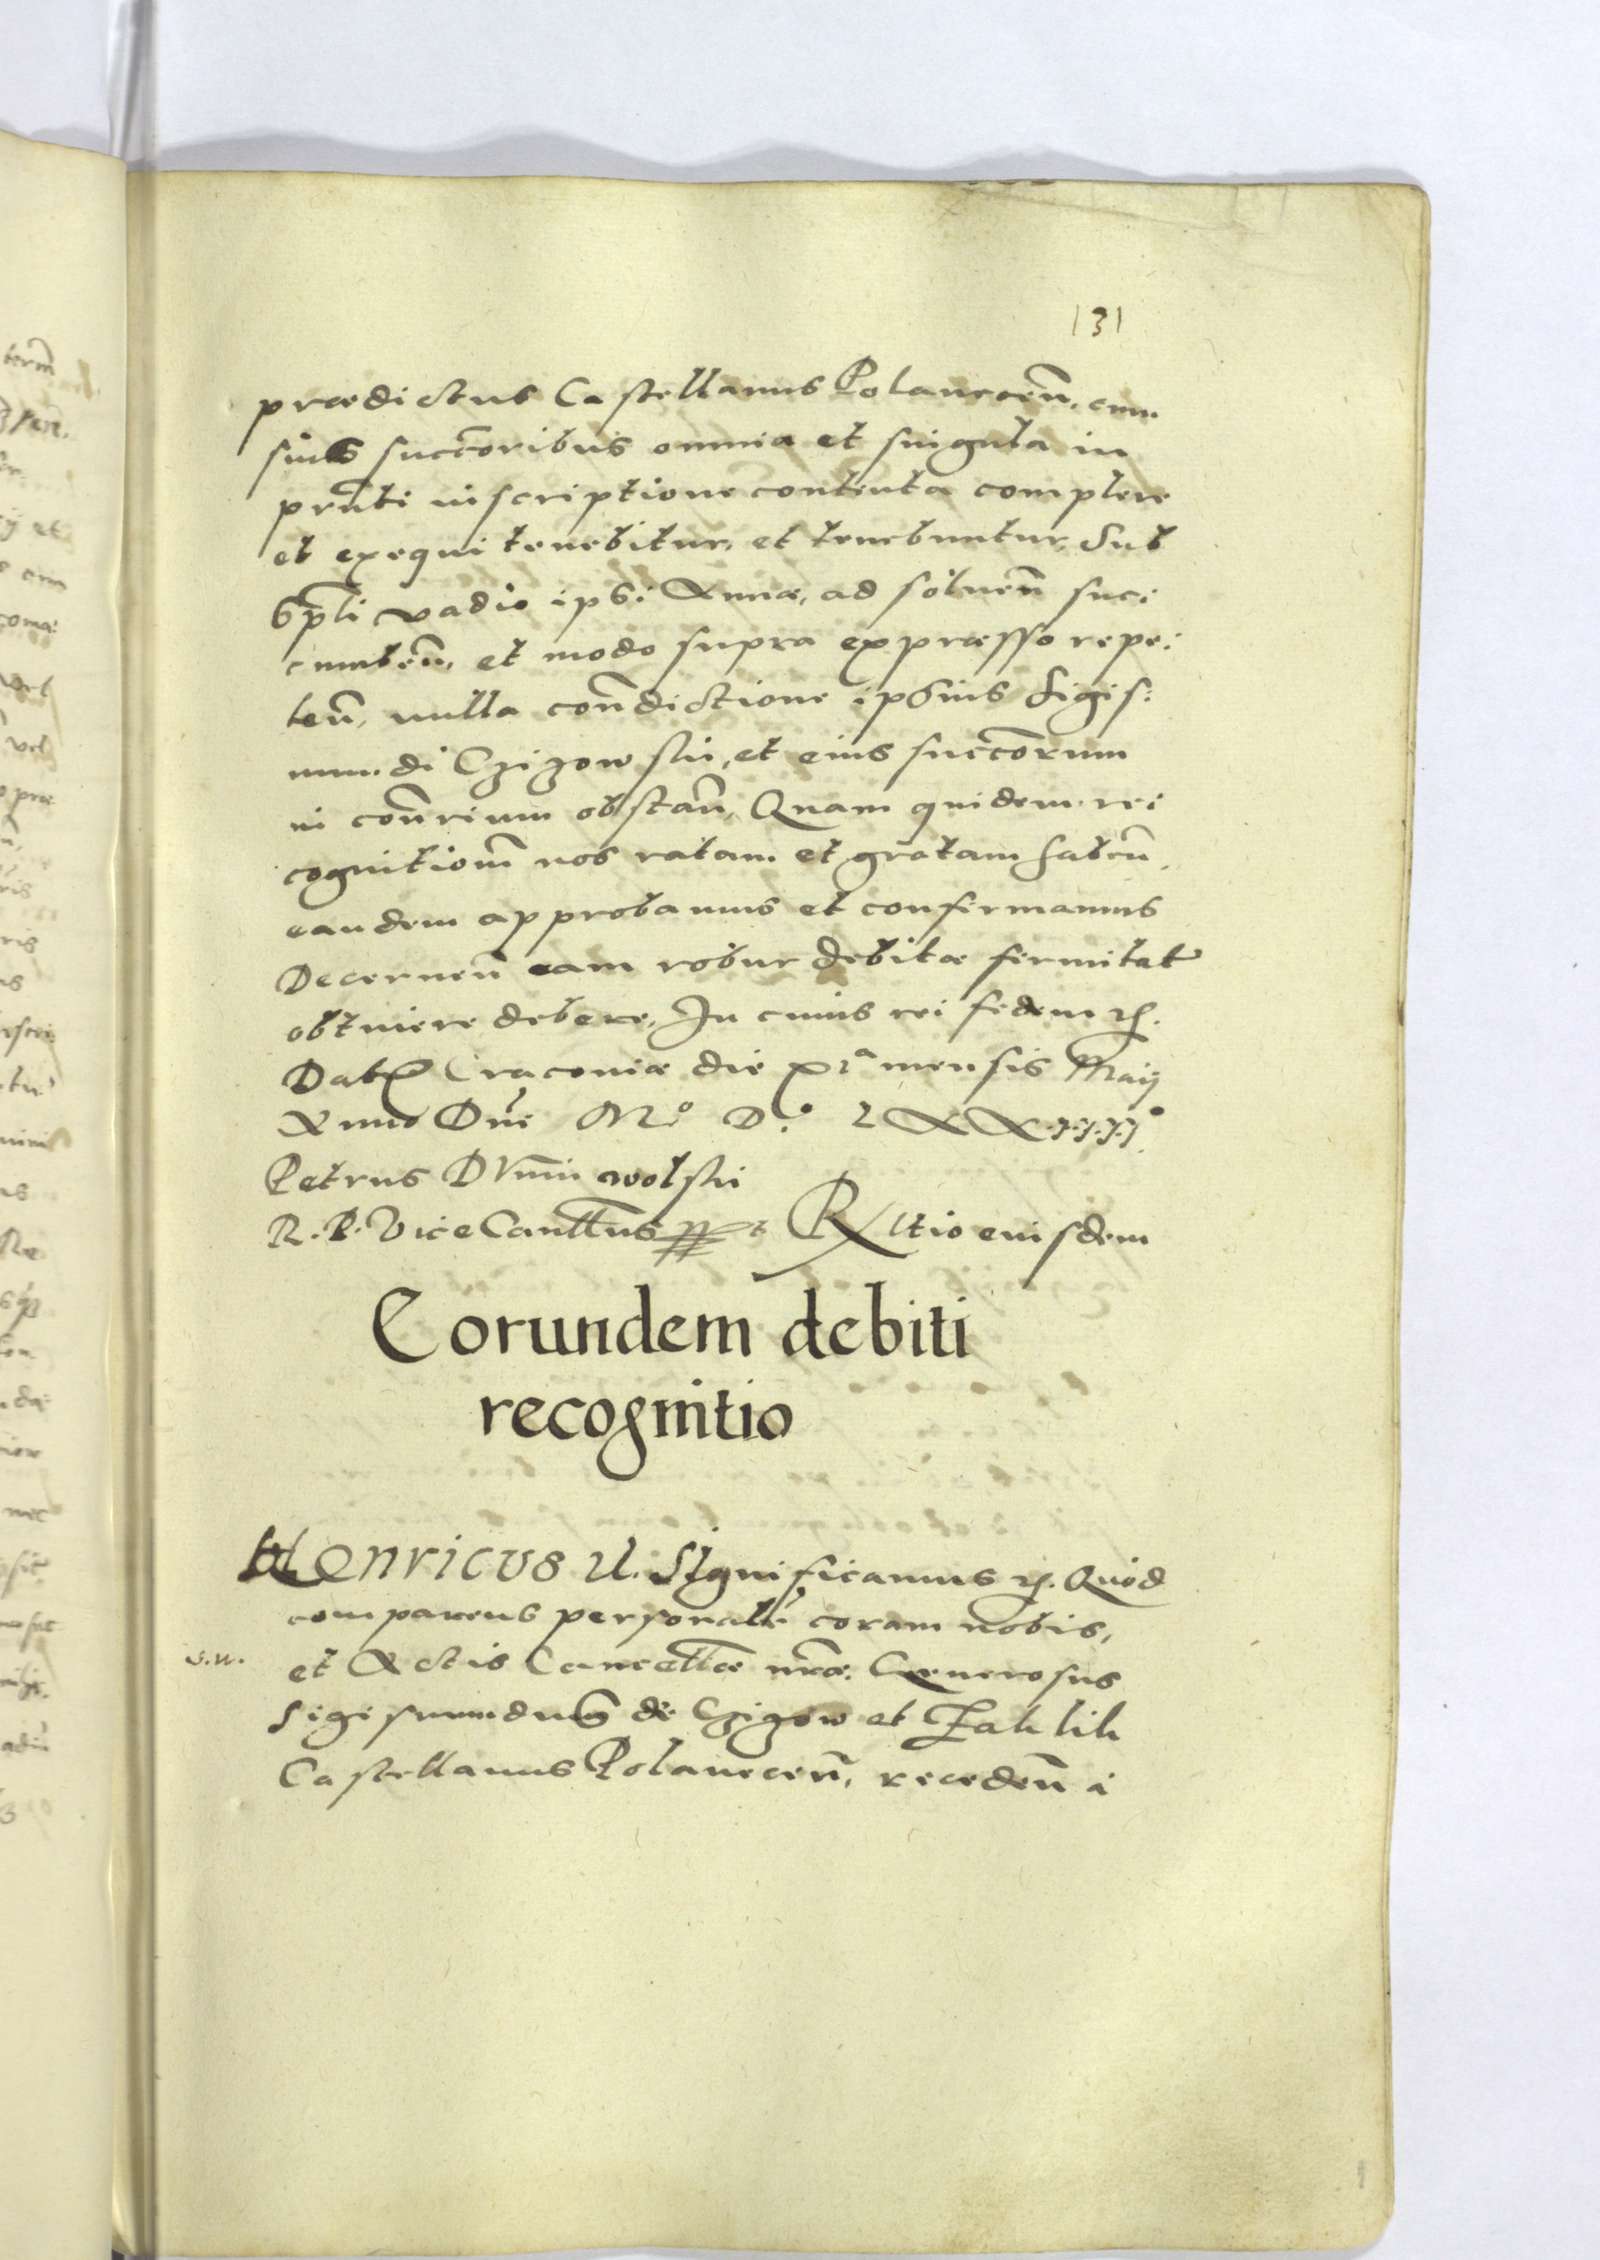 131
prædictus Castellanus Polanecen̄. cum
suis succ̄oribus omnia et singula in
prn̄ti inscriptione contenta complere
et exequi tenebitur, et tenebuntur, Sub
spl̄i vadio ipsi Annæ, ad solven̄ suc:
cumben̄, et modo supra expræsso repe:
ten̄, nulla con̄dictione ipsius Sigis:
mundi Czigowskii, et eius succ̄orum
in con̄rium obstan̄, Quam quidem re:
cognitiōm nos ratam et gratam haben̄,
eandem approbamus et confirmamus
Decernen̄ eam robur debitæ firmitat
obtinere debere, In cuius rei fidem
Dat Cracoviæ die mensis Maij
Anno Dn̄i Mº D.º LXXiiiiº
Petrus Dūnin wolskii
R. P. Vice Canll̄us Rltio eiusdem
Eorundem debiti
recognitio
Henricus Significamus Quod
comparens personalr̄ coram nobis,
et Actis Cancellæ nr̄æ. Generosus
Sigismundus de Czigow et Zaklik
Castellanus Polanecen̄, receden̄ a